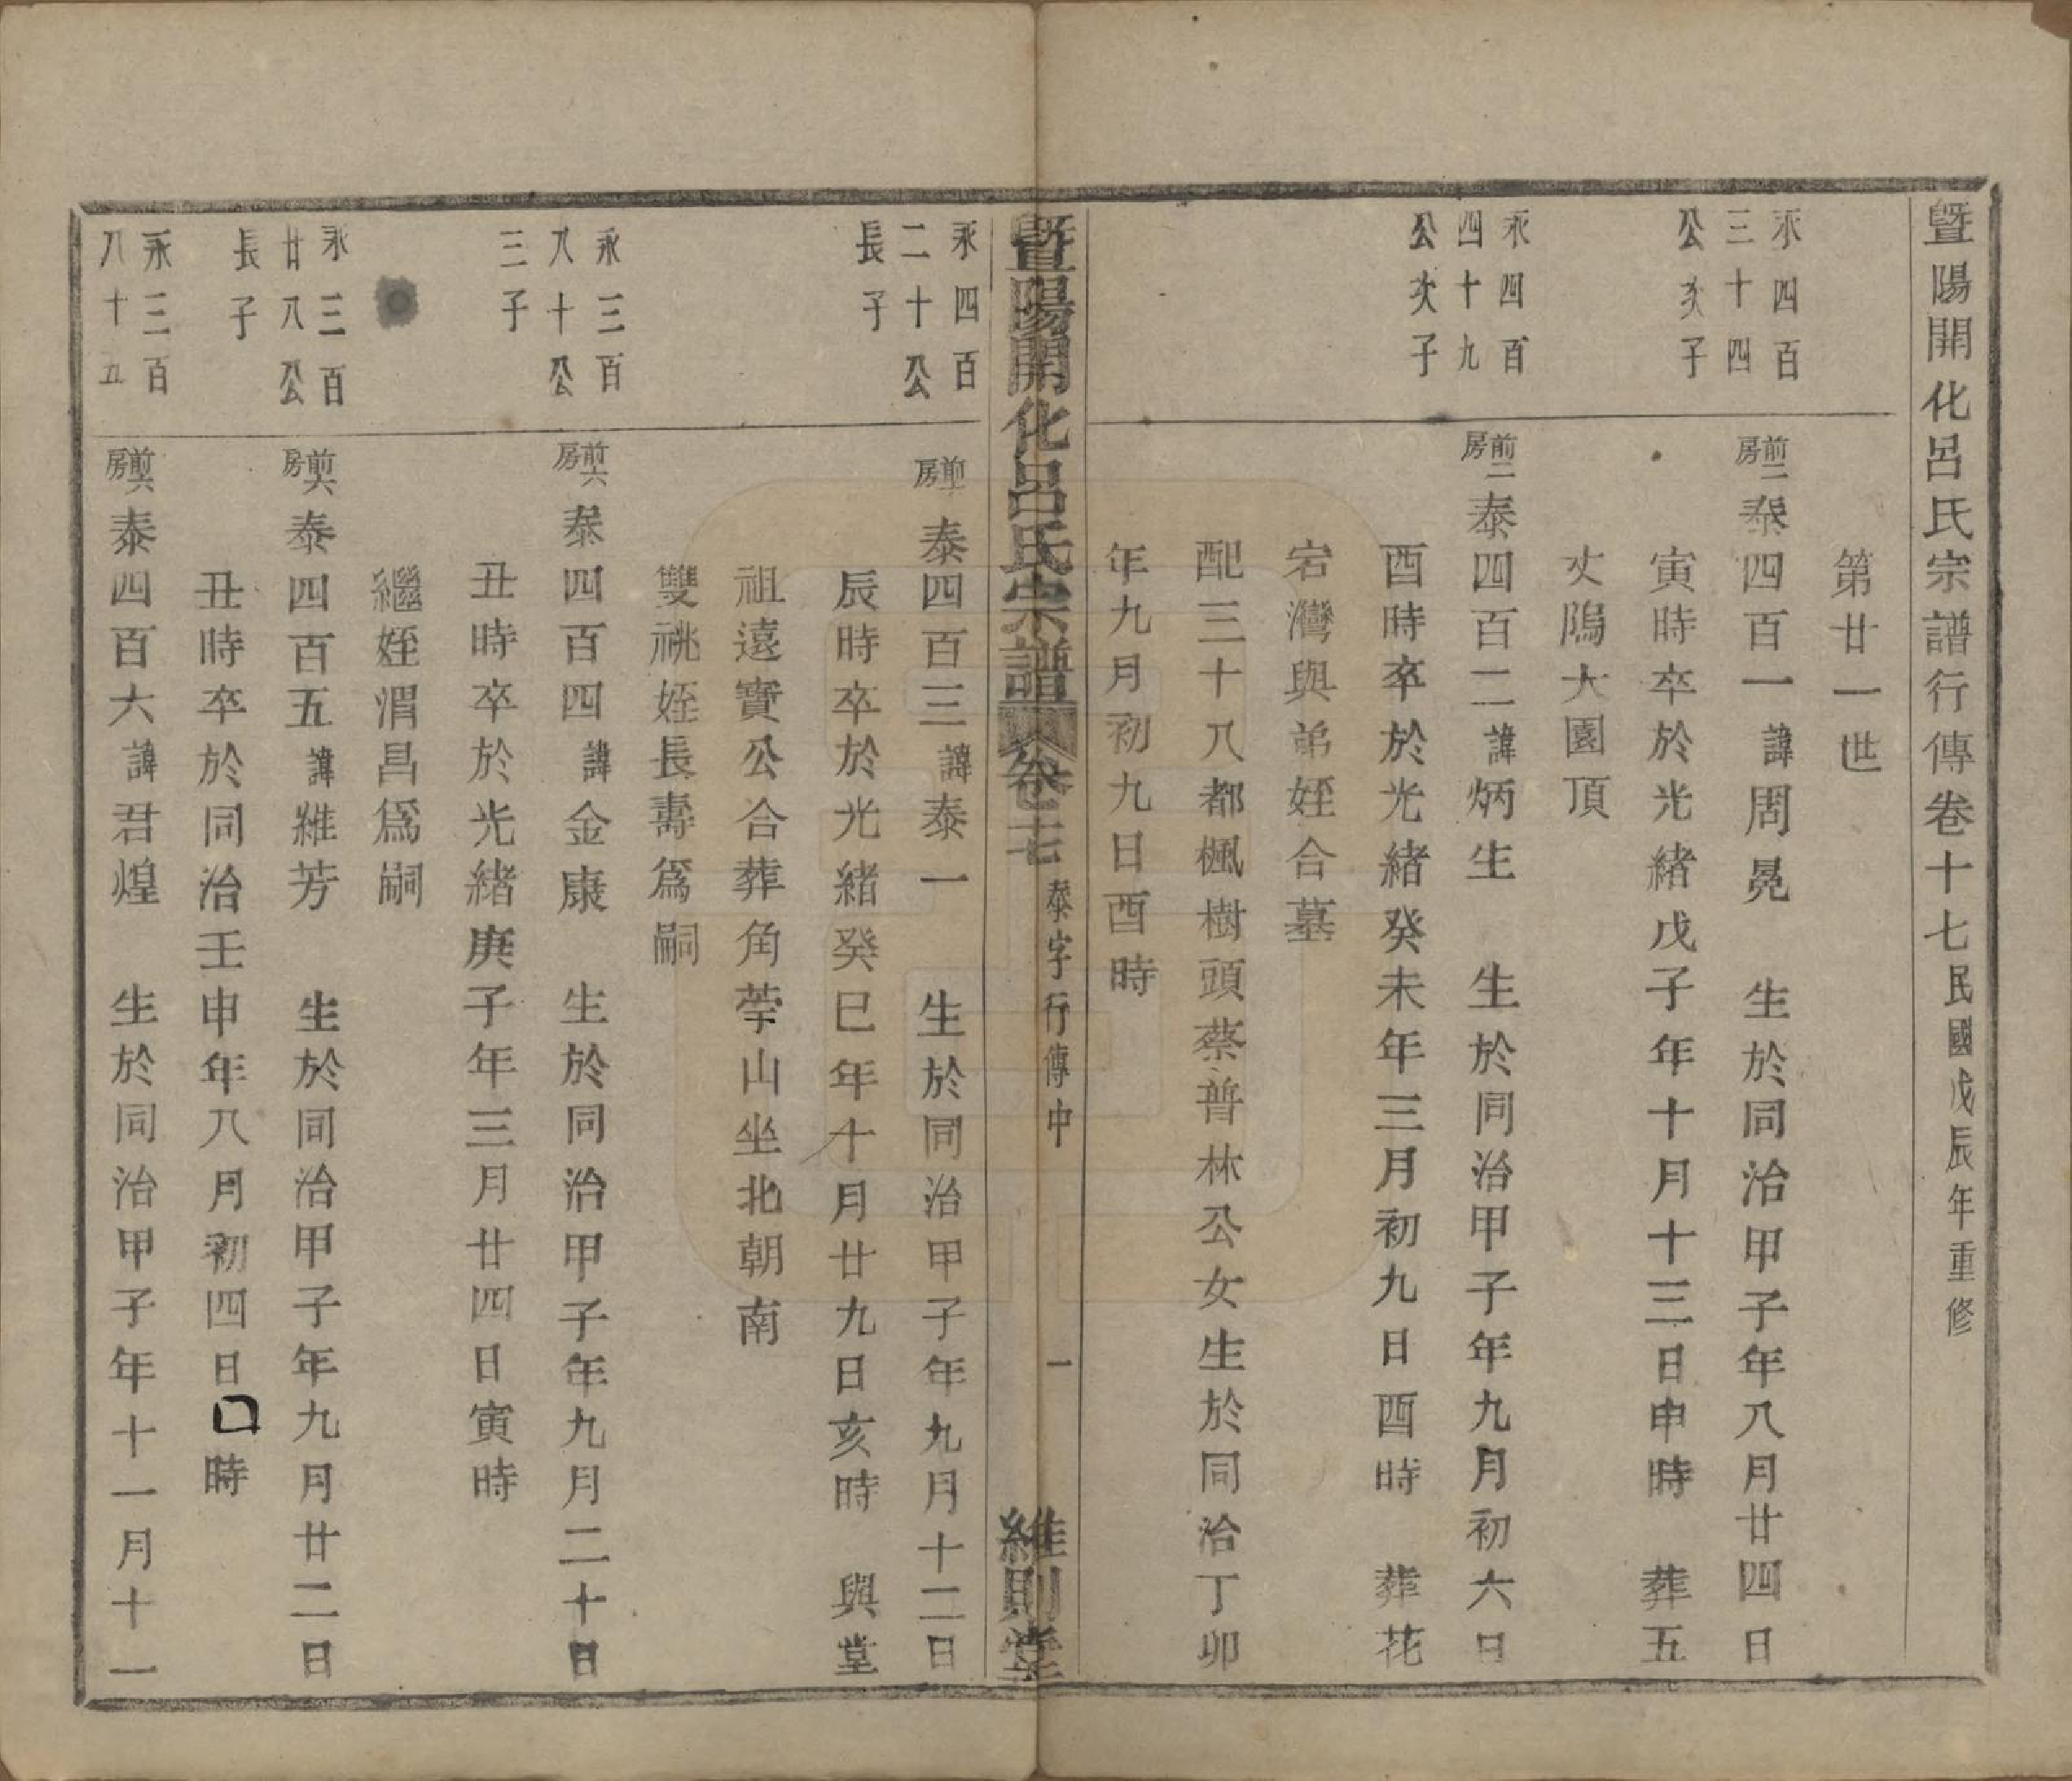 暨陽開化呂氏宗譜行傳卷十七民國戊辰年重修
第廿一世
永四百
三十四
公次子
前二房
泰四百一諱周晃 生於同治甲子年八月廿四日
寅時卒於光緒戊子年十月十三日申時 葬五
丈隖大園頂
永四百
四十九
公次子
前二房
泰四百二諱炳生 生於同治甲子年九月初六日
酉時卒於光緒癸未年三月初九日酉時 葬花
宕灣與弟姪合墓
配三十八都楓樹頭蔡普林公女生於同治丁卯
年九月初九日酉時
暨陽開化呂氏宗譜 卷十七 泰字行傳中 一 維則堂
永四百
二十公
長子
前 房
泰四百三諱泰一 生於同治甲子年九月十二日
辰時卒於光緒癸巳年十月廿九日亥時 與堂
祖遠寶公合葬角塋山坐北朝南
雙祧姪長壽爲嗣
永三百
八十公
三子
前六房
泰四百四諱金康 生於同治甲子年九月二十日
丑時卒於光緒庚子年三月廿四日寅時
繼姪渭昌爲嗣
永三百
廿八公
長子
前六房
泰四百五諱維芳 生於同治甲子年九月廿二日
丑時卒於同治壬申年八月初四日口時
永三百
八十五
前六房
泰四百六諱君煌 生於同治甲子年十一月十一